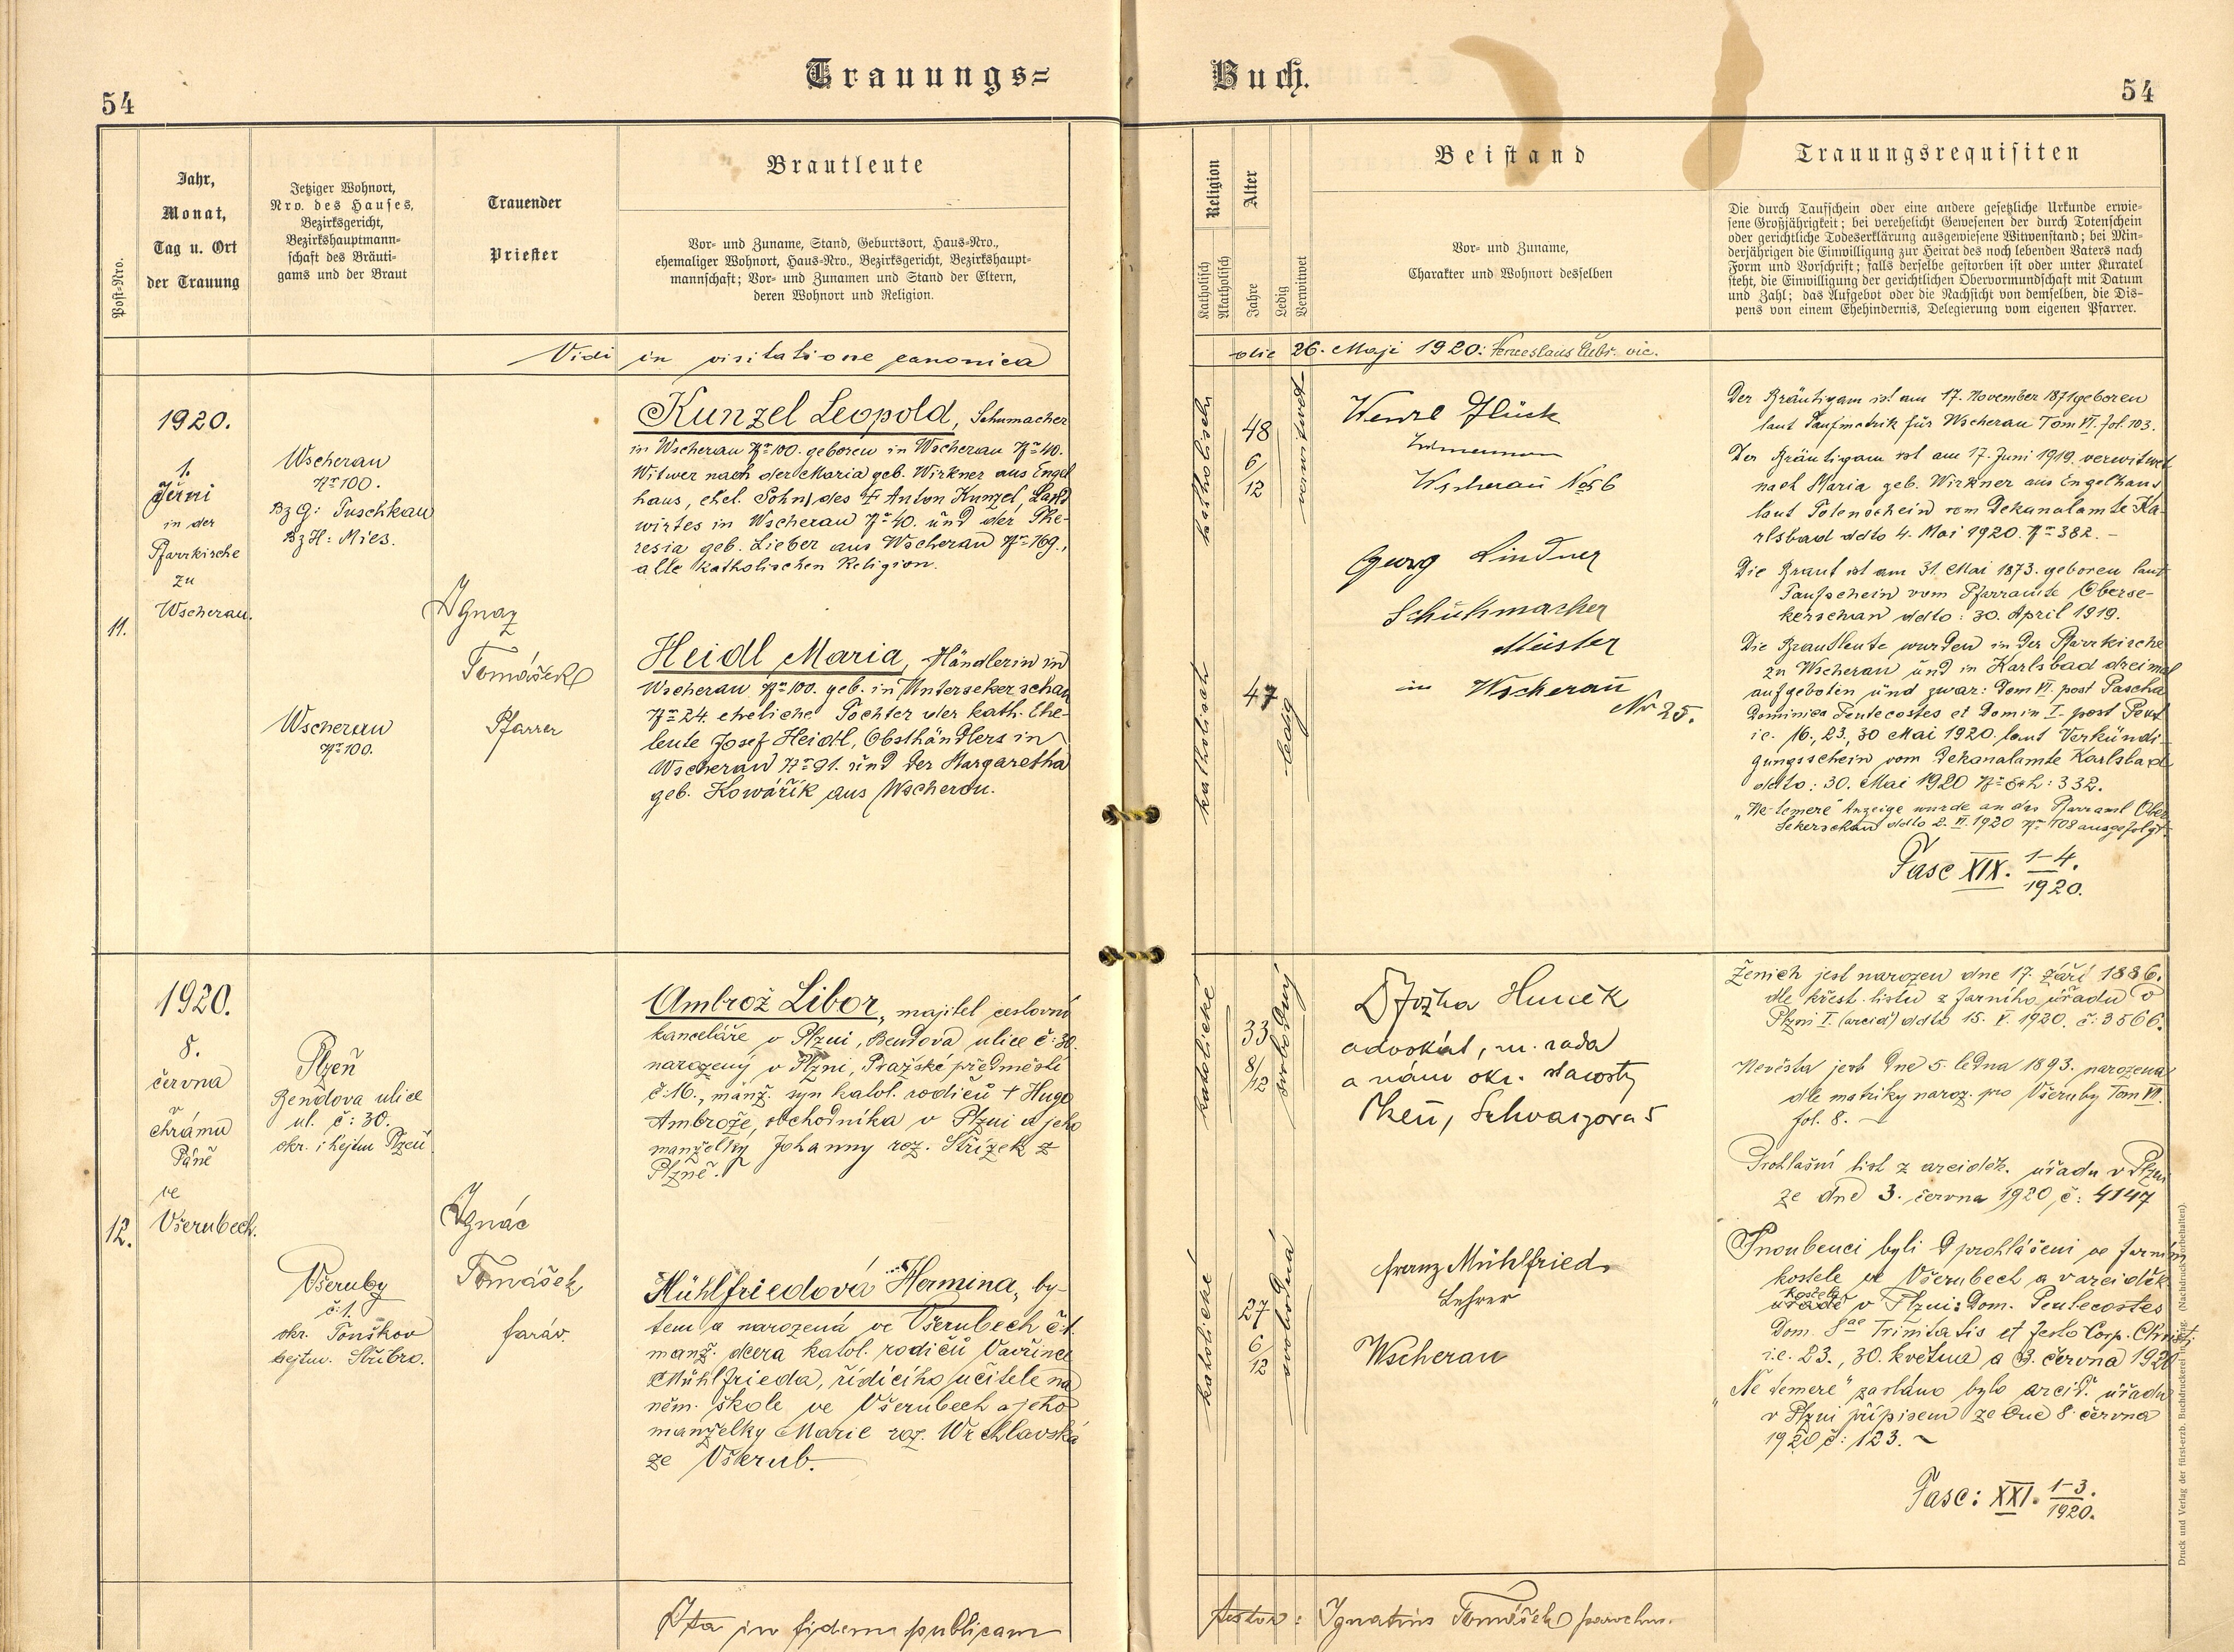 Trauungs=
Buch.
54
54
Post-Nro.
Jahr,
Monat,
Tag u. Ort
der Trauung
Jetziger Wohnort,
Nro. des Hauses,
Bezirksgericht,
Bezirkshauptmann-
schaft des Bräuti-
gams und der Braut
Trauender
Priester
Brautleute
Vor- und Zuname, Stand, Geburtsort, Haus-Nro.,
ehemaliger Wohnort, Haus-Nro., Bezirksgericht, Bezirkshaupt-
mannschaft; Vor- und Zunamen und Stand der Eltern,
deren Wohnort und Religion.
Religion
Katholisch
Akatholisch
Alter
Jahre
Ledig
Verwitwet
Beistand
Vor- und Zuname,
Charakter und Wohnort desselben
Trauungsrequisiten
Die durch Taufschein oder eine andere gesetzliche Urkunde erwie-
sene Großjährigkeit; bei verehelicht Gewesenen der durch Totenschein
oder gerichtliche Todeserklärung ausgewiesene Witwenstand; bei Min-
derjährigen die Einwilligung zur Heirat des noch lebenden Vaters nach
Form und Vorschrift; falls derselbe gestorben ist oder unter Kuratel
steht, die Einwilligung der gerichtlichen Obervormundschaft mit Datum
und Zahl; das Aufgebot oder die Nachsicht von demselben, die Dis-
pens von einem Ehehindernis, Delegierung vom eigenen Pfarrer.
Vidi in visitatione canonica
die 26. Maji 1920: Venceslaus vic.
11.
1920.
1.
Juni
in der
Pfarrkirche
zu
Wscherau.
Wscherau
Nr 100.
BzG: Tuschkau
BzH: Mies.
Wscherau
Nr 100.
Ignaz
Tomášek
Pfarrer
Kunzel Leopold, Schumacher
in Wscherau Nr 100. geboren in Wscherau Nr 40.
Witwer nach der Maria geb. Wirkner aus Engel
haus, ehel. Sohn des † Anton Kunzel, Land
wirtes in Wscherau Nr 40. und der The-
resia geb. Lieber aus Wscherau Nr 169.,
alle katholischen Religion.
Heidl Maria, Händlerin in
Wscherau Nr 100. geb. in Untersekerschan
Nr 24. eheliche Tochter der kath. Ehe-
leute Josef Heidl, Obsthändlers in
Wscherau Nr 91. und der Margaretha
geb. Kowářik aus Wscherau.
katholisch
48
6/12
verwitwet
katholisch
47
ledig
Wenzl Flück
Wscherau No 56
Georg Lindner
Schuhmacher
Meister
in Wscherau
Nr 25.
Der Bräutigam ist am 17. November 1871 geboren
laut Taufmatrik für Wscherau Tom VI. fol. 103.
Der Bräutigam ist am 17. Juni 1919. verwitwet
nach Maria geb. Wirkner aus Engelhaus
laut Totenschein vom Dekanalamte Ka-
rlsbad ddto 4. Mai 1920. Nr 382. -
Die Braut ist am 31. Mai 1873. geboren laut
Taufschein vom Pfarramte Oberse-
kerschan ddto: 30. April 1919.
Die Brautleute wurden in der Pfarrkirche
zu Wscherau und in Karlsbad dreimal
aufgeboten und zwar: Dom VI. post Pascha
Dominica Pentecostes et Domin I. post Pent
i.e. 16., 23., 30 Mai 1920. laut Verkündi-
gungsschein vom Dekanalamte Karlsbad
ddto: 30. Mai 1920 Nr Exh: 332.
„Ne temere" Anzeige wurde an das Pfarramt Ober
Sekerschan ddto 2. VI. 1920 Nr 108 ausgefolgt.
Fasc XIX. 1-4./1920.
12.
1920.
8.
června
v
chrámu
Páně
ve
Všerubech.
Plzeň
Bendova ulice
ul. č: 30.
okr. i hejtm Plzeň
Všeruby
č: 1.
okr. Touškov
hejtm. Stříbro.
Ignác
Tomášek
farář.
Ambrož Libor, majitel cestovní
kanceláře v Plzni, Bendova ulice č: 30.
narozený v Plzni, Pražské předměstí
č: 16., manž. syn katol. rodičů † Hugo
Ambrože, obchodníka v Plzni a jeho
manželky Johanny roz. Střízek z
Plzně.
Mühlfriedová Hermina, by-
tem a narozená ve Všerubech č: 1.
manž. dcera katol. rodičů Vavřince
Mühlfrieda, řídícího učitele na
něm. škole ve Všerubech a jeho
manželky Marie roz. Wrchlavská
ze Všerub.
katolické
33
8/12
svobodný
katolické
27
6/12
svobodná
advokát, m. rada
a nám okr. starosty
Plzeň, Schwarzova 5
Franz Mühlfried
Lehrer
Wscherau
Ženich jest narozen dne 17. září 1886.
dle křest. listu z farního úřadu v
Plzni I. (arcid) ddto 15. V. 1920. č: 3566.
Nevěsta jest dne 5. ledna 1893. narozena
dle matriky naroz. pro Všeruby Tom VII.
fol. 8. -
Prohlašní list z arciděk. úřadu v Plzni
ze dne 3. června 1920, č: 4147
Snoubenci byli prohlášeni ve farním
kostele ve Všerubech a v arciděk
kostela
úřadě v Plzni: Dom. Pentecostes
Dom. Sae Trinitatis et festo Corp. Christi
i.e. 23., 30. května a 3. června 1920
„Ne temere" zasláno bylo arcid. úřadu
v Plzni přípisem ze dne 8. června
1920 č: 123. ~
Fasc: XXI. 1-3./1920.
Ita in fidem publicam
testor: Ignatius Tomášek parochus.
Druck und Verlag der fürst-erzb. Buchdruckerei in Prag. (Nachdruck vorbehalten).